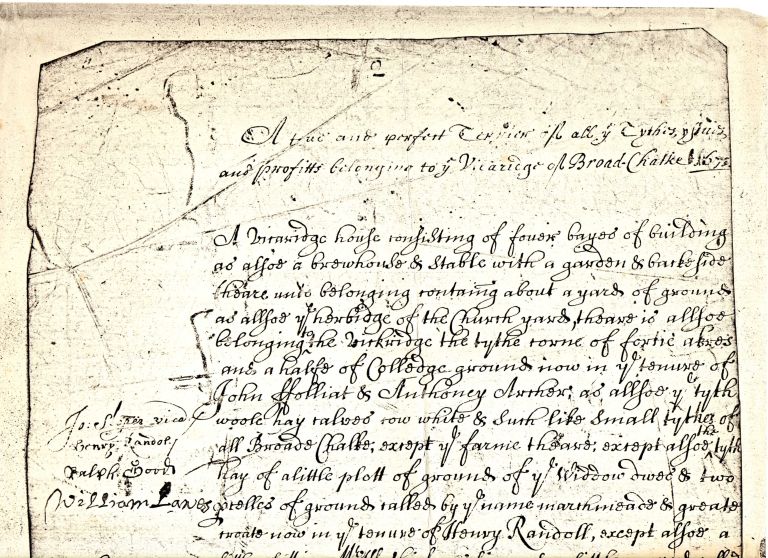 A true and perfect Terrier of all yͤ Tythes
and profitts belonging to yͤ Vicaridge of Broad-Chalke 167
A Vicaridge house consisting of fouer bayes of building
as allsoe a brewhouse & stable with a garden & backeside
theare unto belonging containg about a yard of ground
as allsoe yͤ herbidge of the Church yard, theare is allsoe
belonging to the Vickridge the tythe corne of fortie akres
and a halfe of Colledge ground now in yͤ tenure of
John ffolliat & Anthoney Archer; as allsoe yͤ tyth
woole hay calves cow white & such like small tythes of
all Broade Chalke; except yͤ farme theare; except allsoe the tyth
hay of alittle plott of ground of yͤ Widdow owes & two
of ground called by yͤ name marchmeade & greate
now in yͤ tenure of Henry Randoll, except allsoe a
vicar
Henry Randoll
Ralph Good
William Lawes